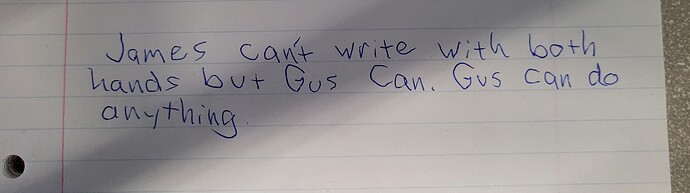 James can't write with both
hands but Gus Can. Gus can do
anything.